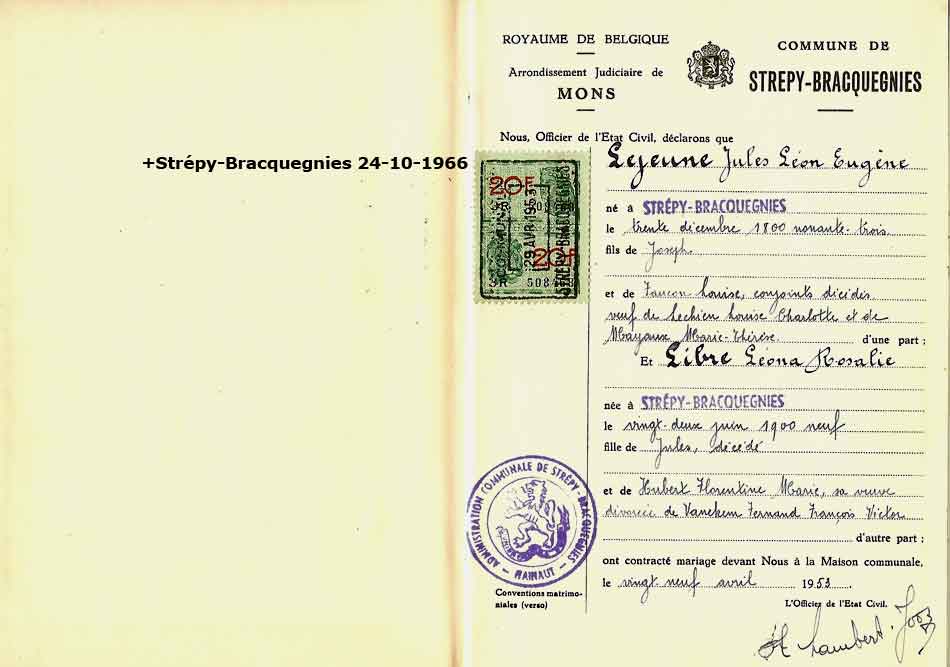 +Strépy-Bracquegnies 24-10-1966
ROYAUME DE BELGIQUE
Arrondissement Judiciaire de
MONS
COMMUNE DE
STREPY-BRACQUEGNIES
Nous, Officier de l'Etat Civil, déclarons que
Lejeune Jules Léon Eugène
né à STRÉPY-BRACQUEGNIES
le trente décembre 1800 nonante-trois
fils de Joseph
et de Faucon Louise, conjoints décédés
veuf de Lechien Louise Charlotte et de
Mayaux Marie-Thérèse. d'une part ;
Et Libre Léona Rosalie
née à STRÉPY-BRACQUEGNIES
le vingt-deux juin 1900 neuf
fille de Jules, décédé
et de Hubert Florentine Marie, sa veuve
divorcée de Vanekem Fernand François Victor
d'autre part ;
ont contracté mariage devant Nous à la Maison communale,
le vingt neuf avril 1953.
L'Officier de l'Etat Civil.
Lambert.
20F
3R
29 AVR 1953
STRÉPY-BRACQUEGNIES
20F
3R 508
ADMINISTRATION COMMUNALE DE STRÉPY-BRACQUEGNIES
— HAINAUT —
Conventions matrimo-
niales (verso)